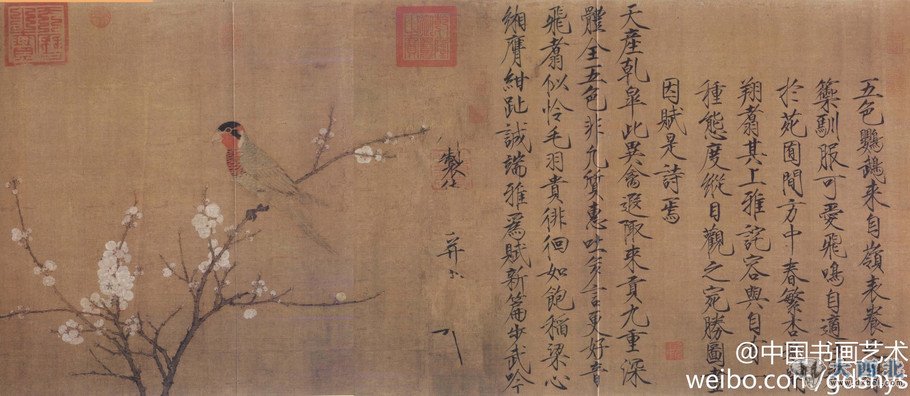 五色鸚鵡來自嶺表養
籞馴服可愛飛鳴自適
於苑囿間方中春繁杏
翔翥其上雅詫容與自一
種態度縱目觀之宛勝圖畫
因賦是詩焉
天產乾皋此異禽遐陬來貢九重深
體全五色非凡質惠吐多言更好音
飛翥似憐毛羽貴徘徊如飽稻粱心
緗膺紺趾誠端雅為賦新篇步武吟
製
并
@中国书画艺术
weibo.com/gdshys